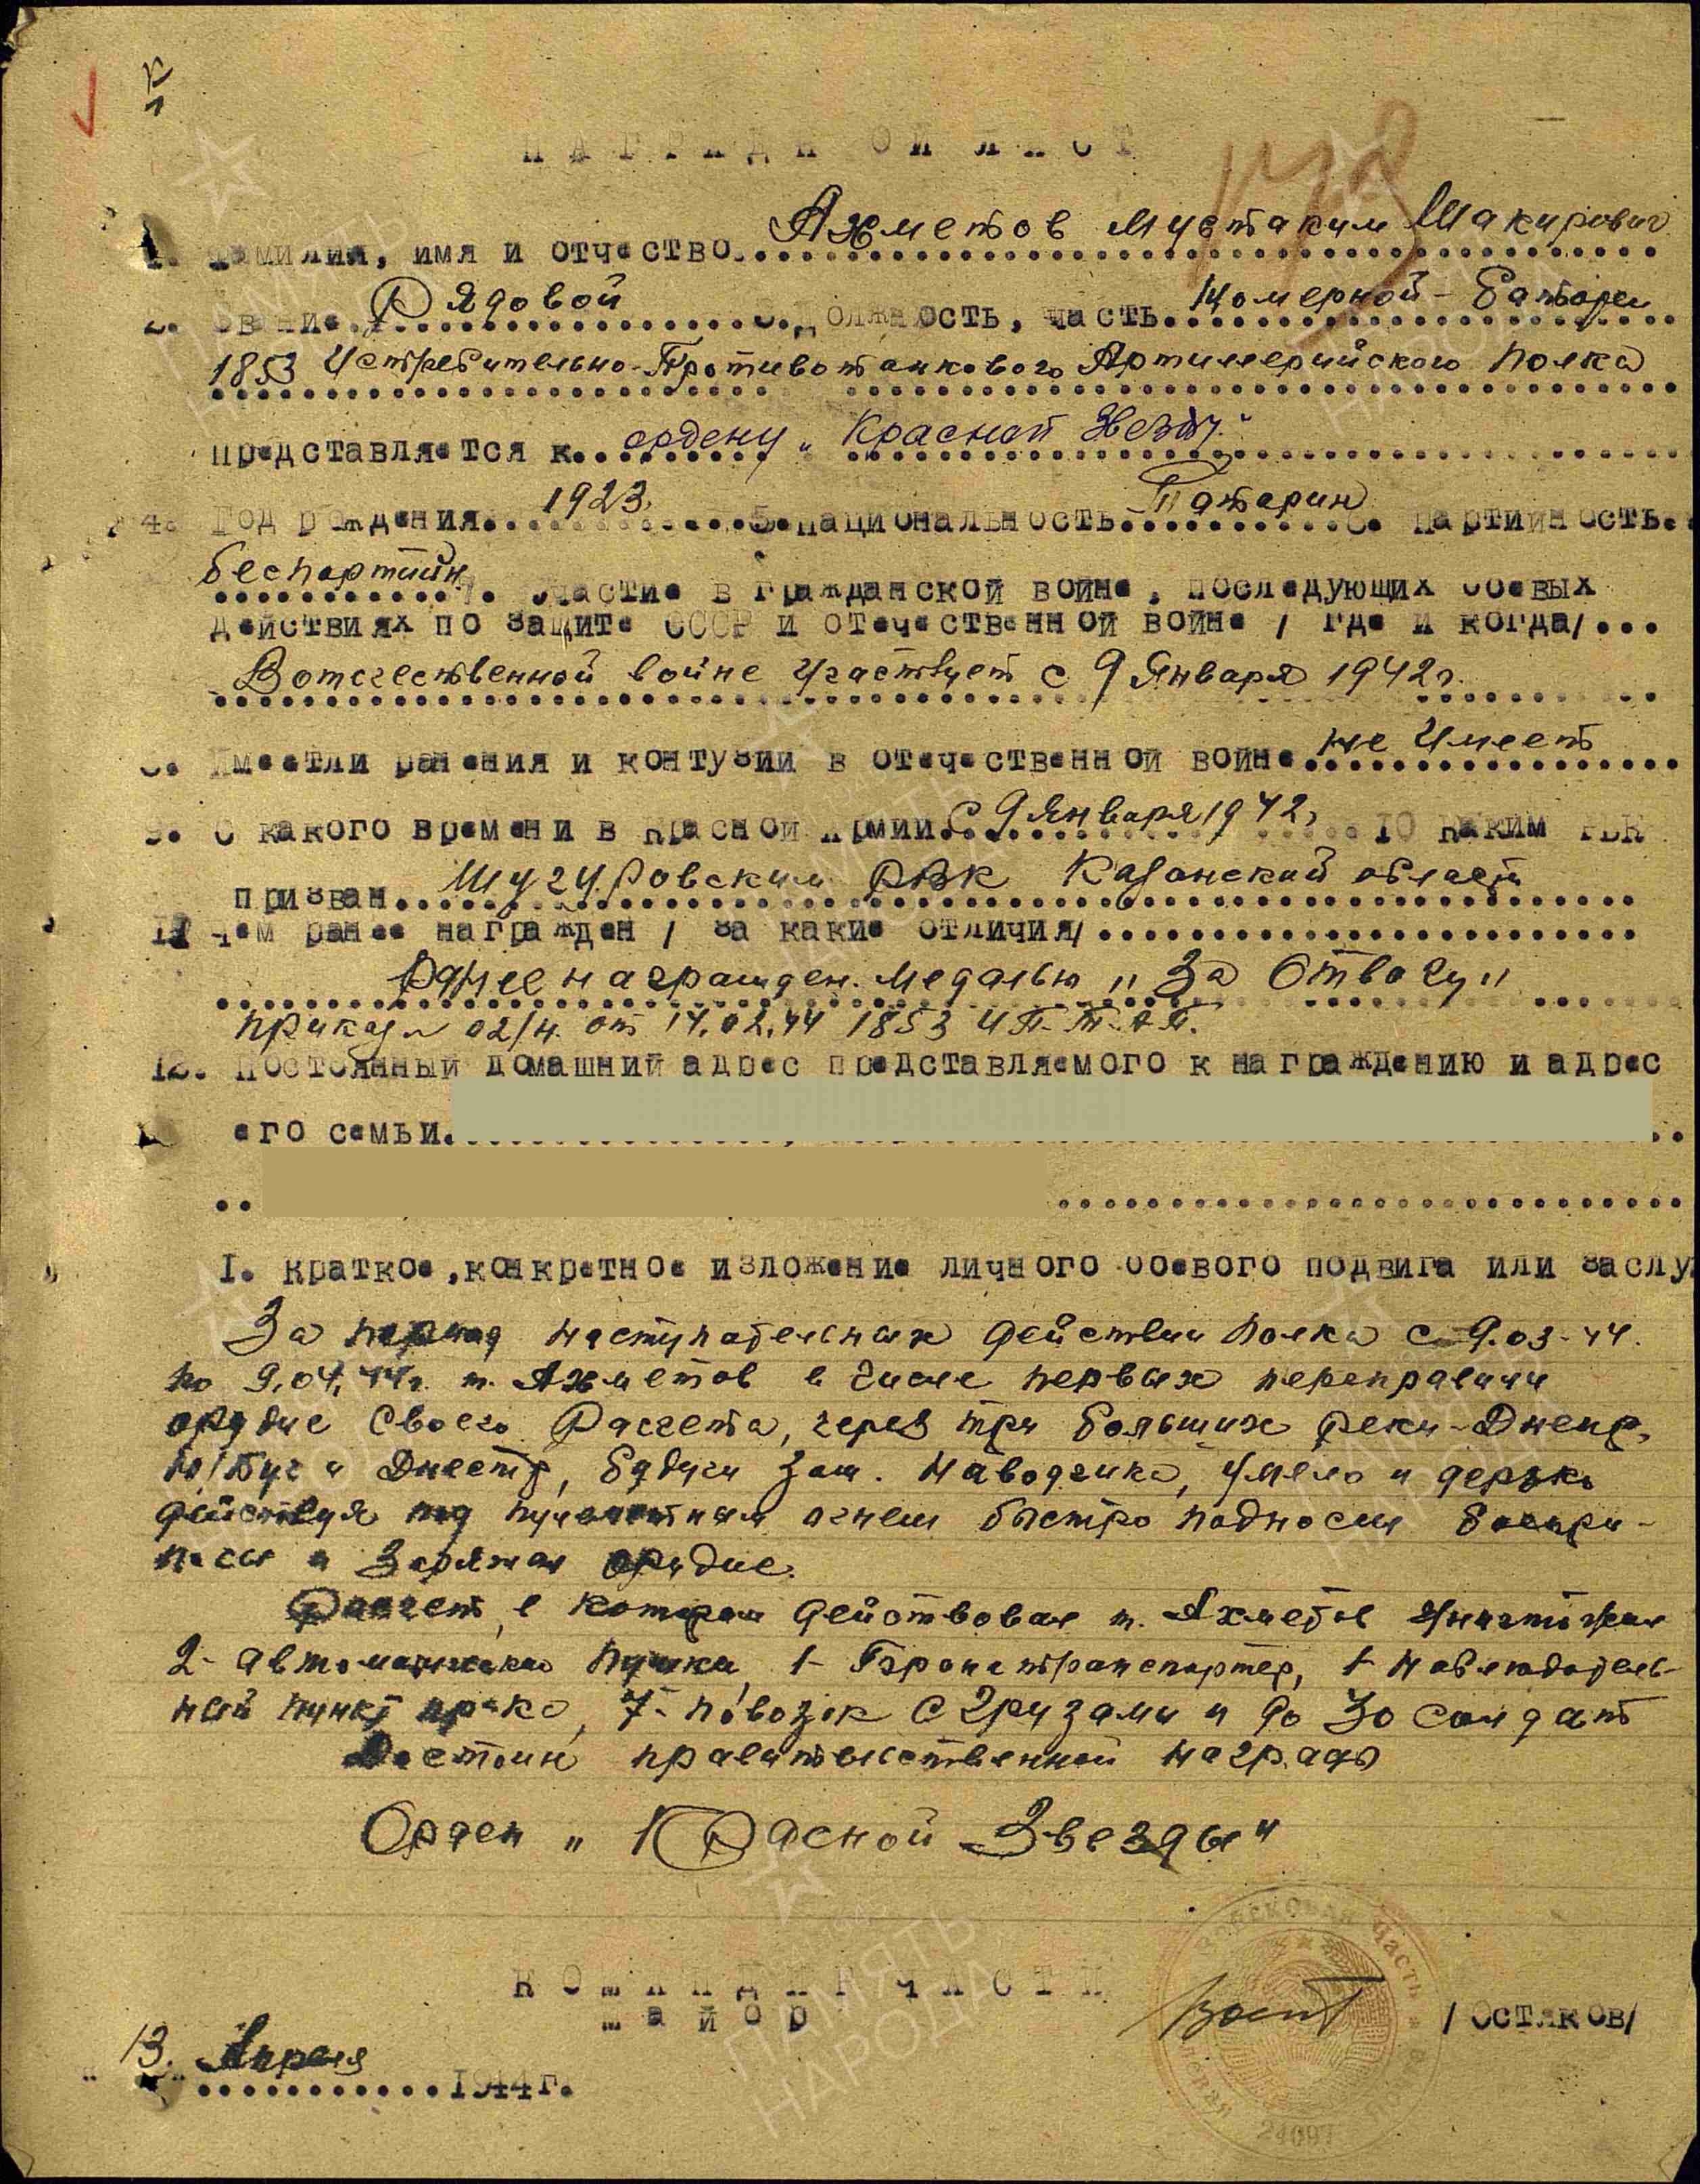 НАГРАДНОЙ ЛИСТ
1. Фамилия, имя и отчество... Ахметов Мустаким Шакирович
2. Звание... Рядовой 3. Должность, часть... Номерной - Батареи
1853 Истребительно-Противотанкового Артиллерийского Полка
представляется к... ордену „Красной Звезды"
4. Год рождения... 1923. 5. национальность... Татарин 6. партийность..
беспартийн 7. Участие в гражданской войне, последующих боевых
действиях по защите СССР и отечественной войне / где и когда/...
Вотечественной войне Участвует с 9 Января 1942г.
8. Имеетли ранения и контузии в отечественной войне... не Имеет
9. С какого времени в Красной Армии. С 9 Января 1942, 10 каким РВК
призван... РВК Казанский област
11 чем ранее награжден / за какие отличия/...
Ранее награжден. медалью „За Отвагу"
приказ 02/н. от 14.02.44 1853 И.П.Т.А.П.
12. постоянный домашний адрес представляемого к награждению и адрес
его семьи...
I. краткое, конкретное изложение личного боевого подвига или заслу
За период наступательных действии Полка с 9.03-44.
по 9.04.44г. т. Ахметов в числе первых переправили
орудие своего Расчета, через три больших реки - Днепр,
Ю/Буг и Днестр, будучи зам. наводчика, умело и дерзко
действуя под пулеметным огнем быстро подносил боепри-
пасы и заряжал орудие.
Расчет, в котором действовал т. Ахметов уничтожил
2- автоматических пушки, 1- Бронетранспортер, 1- наблюдатель-
ный пункт пр-ка, 7- повозок с грузами и до 30 солдат
Достоин правительственной награды
Орден „Красной Звезды"
КОМАНДИР ЧАСТИ
майор /Остяков/
13. Апреля
1944г.
ВОЙСКОВАЯ ЧАСТЬ
ПОЛЕВАЯ ПОЧТА
24097
ПАМЯТЬ НАРОДА